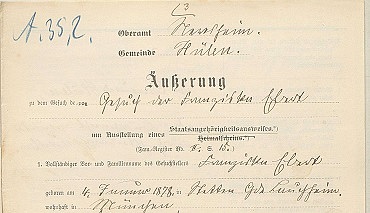 13
A. 35, 2.
Oberamt Neresheim.
Gemeinde Hülen.
Äußerung
zu dem Gesuch de Gesuch der Franziska Ebert
um Ausstellung eines Staatsangehörigkeitsausweises.*)
Heimatscheins.*)
(Fam.-Register Bl. S. 15.)
1. Vollständiger Vor- und Familienname des Gesuchstellers Franziska Ebert
geboren am 4. Januar 1878, in Stetten Gde Lauchheim.
wohnhaft in München